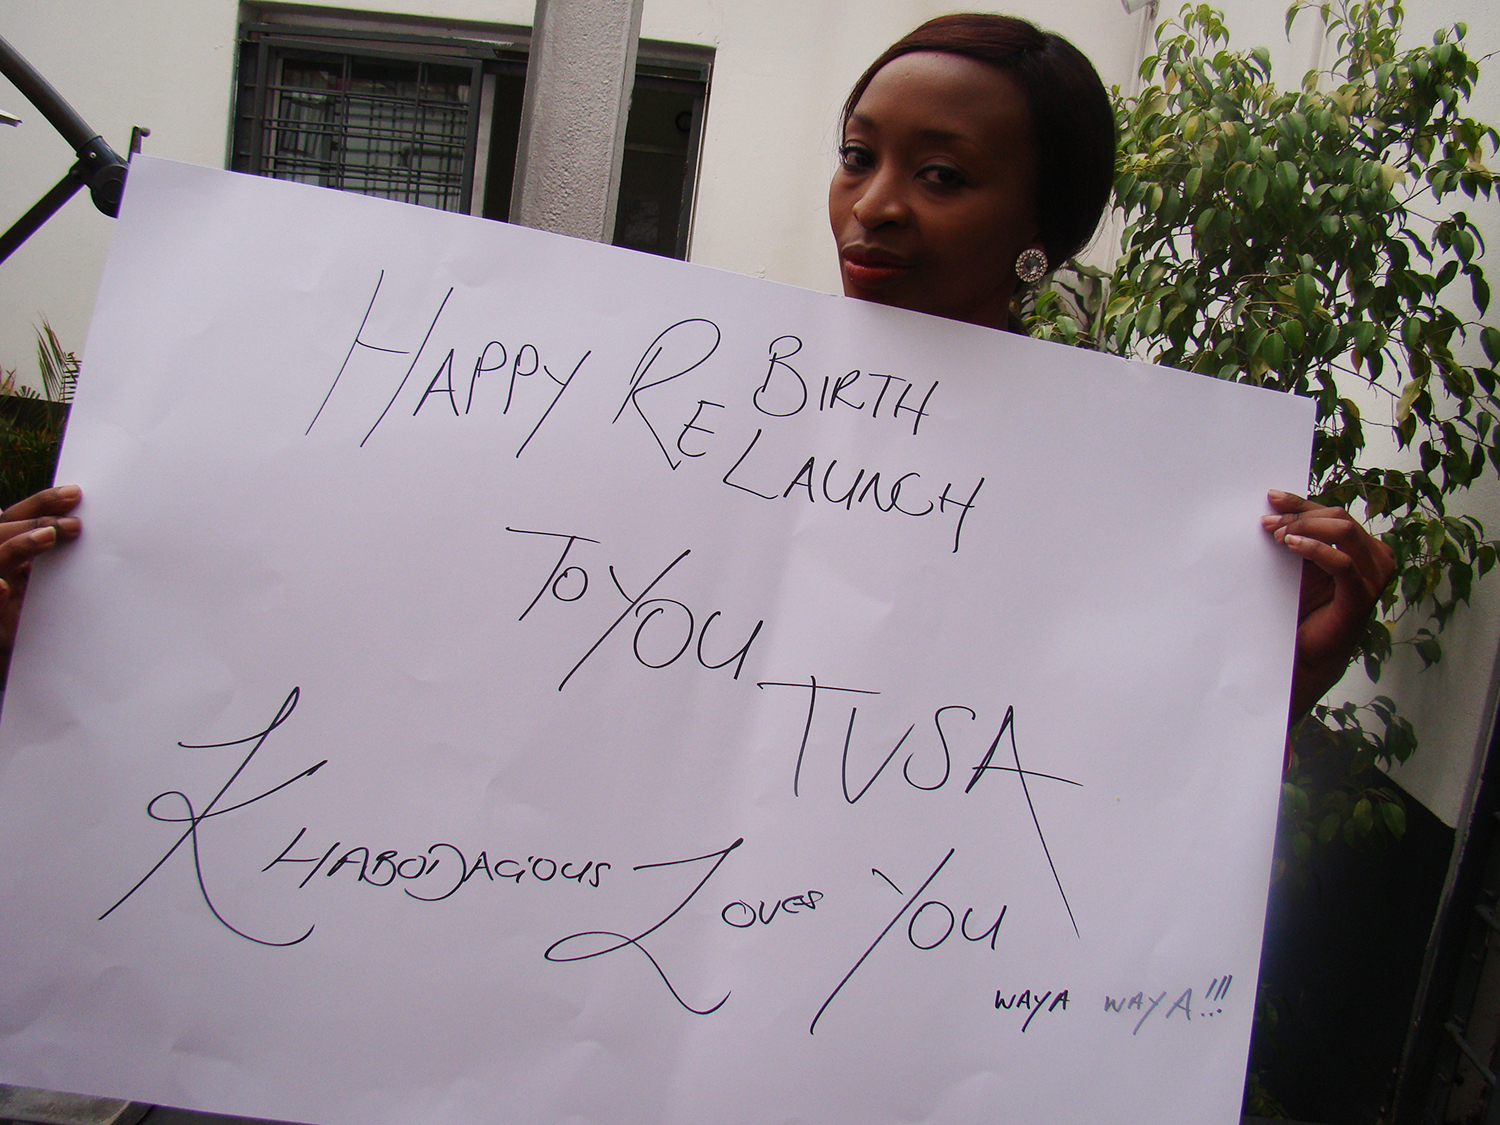 HAPPY RE BIRTH
LAUNCH
TO YOU
TVSA
KHABODACIOUS LOVES YOU
WAYA WAYA!!!